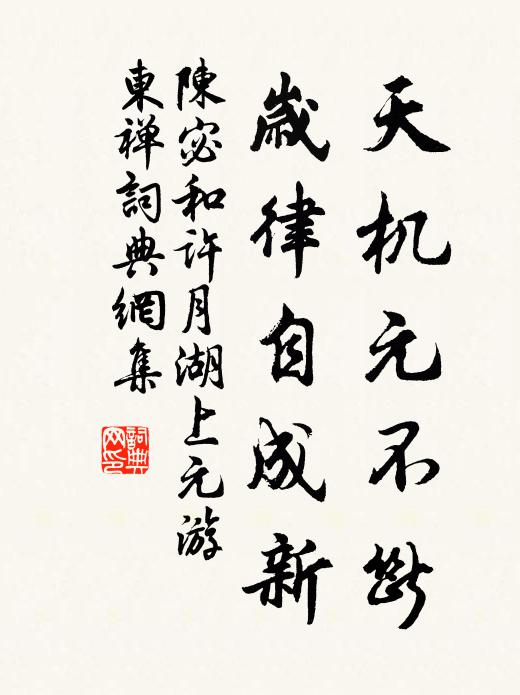 天机元不断
歳律自成新
陳宓和許月湖上元游
東禅詞典網集
詞典网印